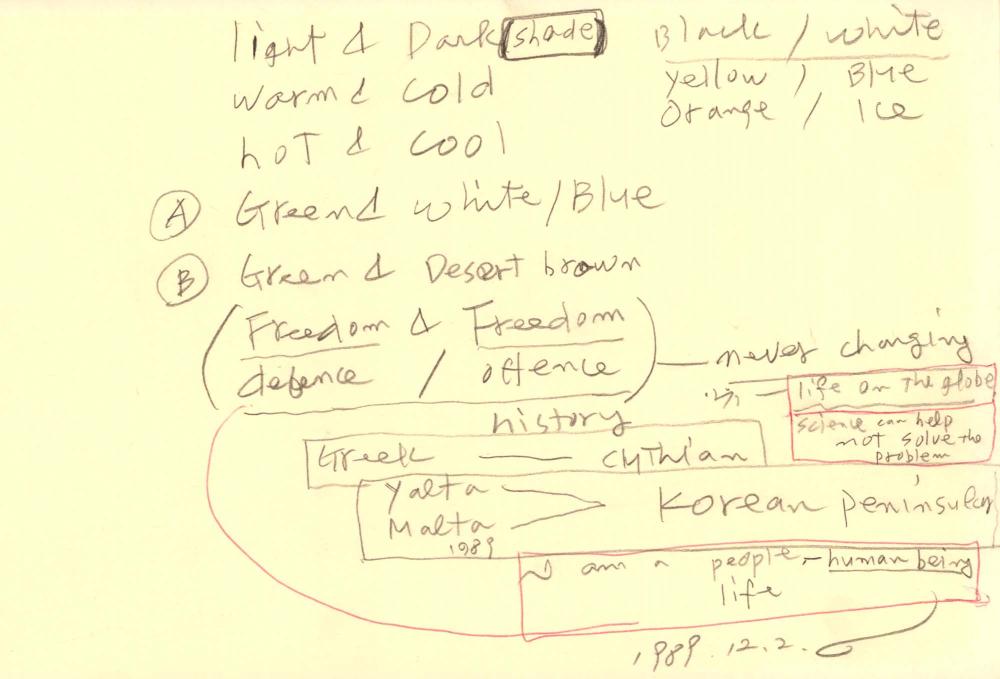 light & Dark (shade) Black / white
warm & cold yellow / Blue
hot & cool Orange / Ice
Ⓐ Green & white / Blue
Ⓑ Green & Desert brown
(Freedom & Freedom
defence / offence) — never changing
life on the globe
history
science can help
not solve the
problem
Greek — cythian
Yalta
Malta
1989
Korean peninsular
I am a people, - human being
life
1989. 12. 2.